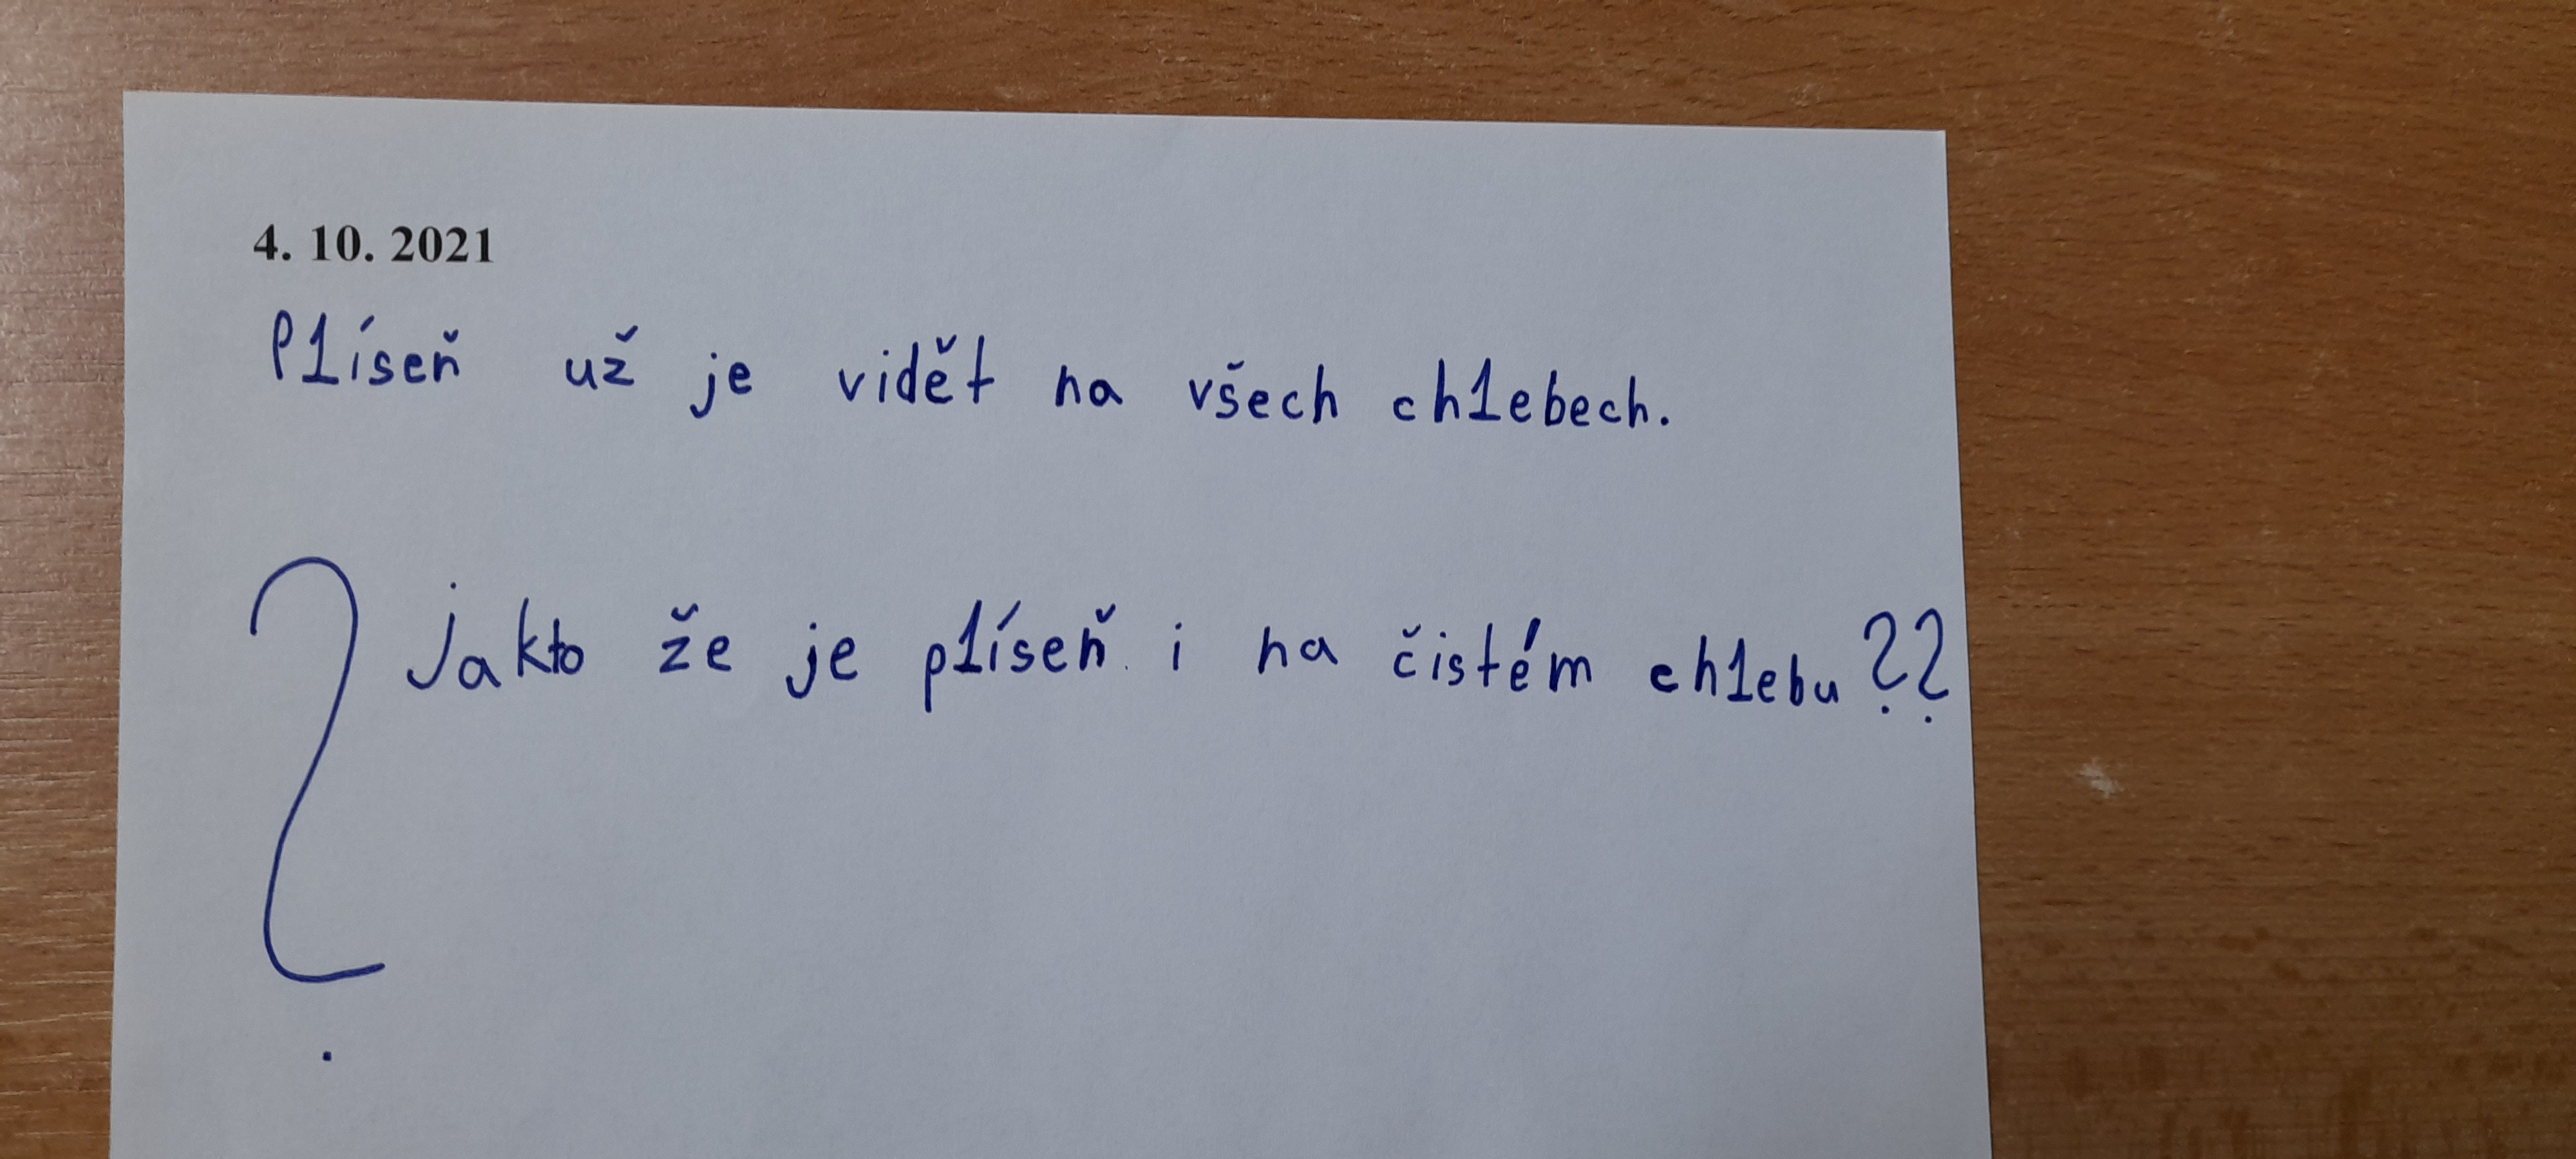 4. 10. 2021
Plíseň už je vidět na všech chlebech.
? Jakto že je plíseň i na čistém chlebu??